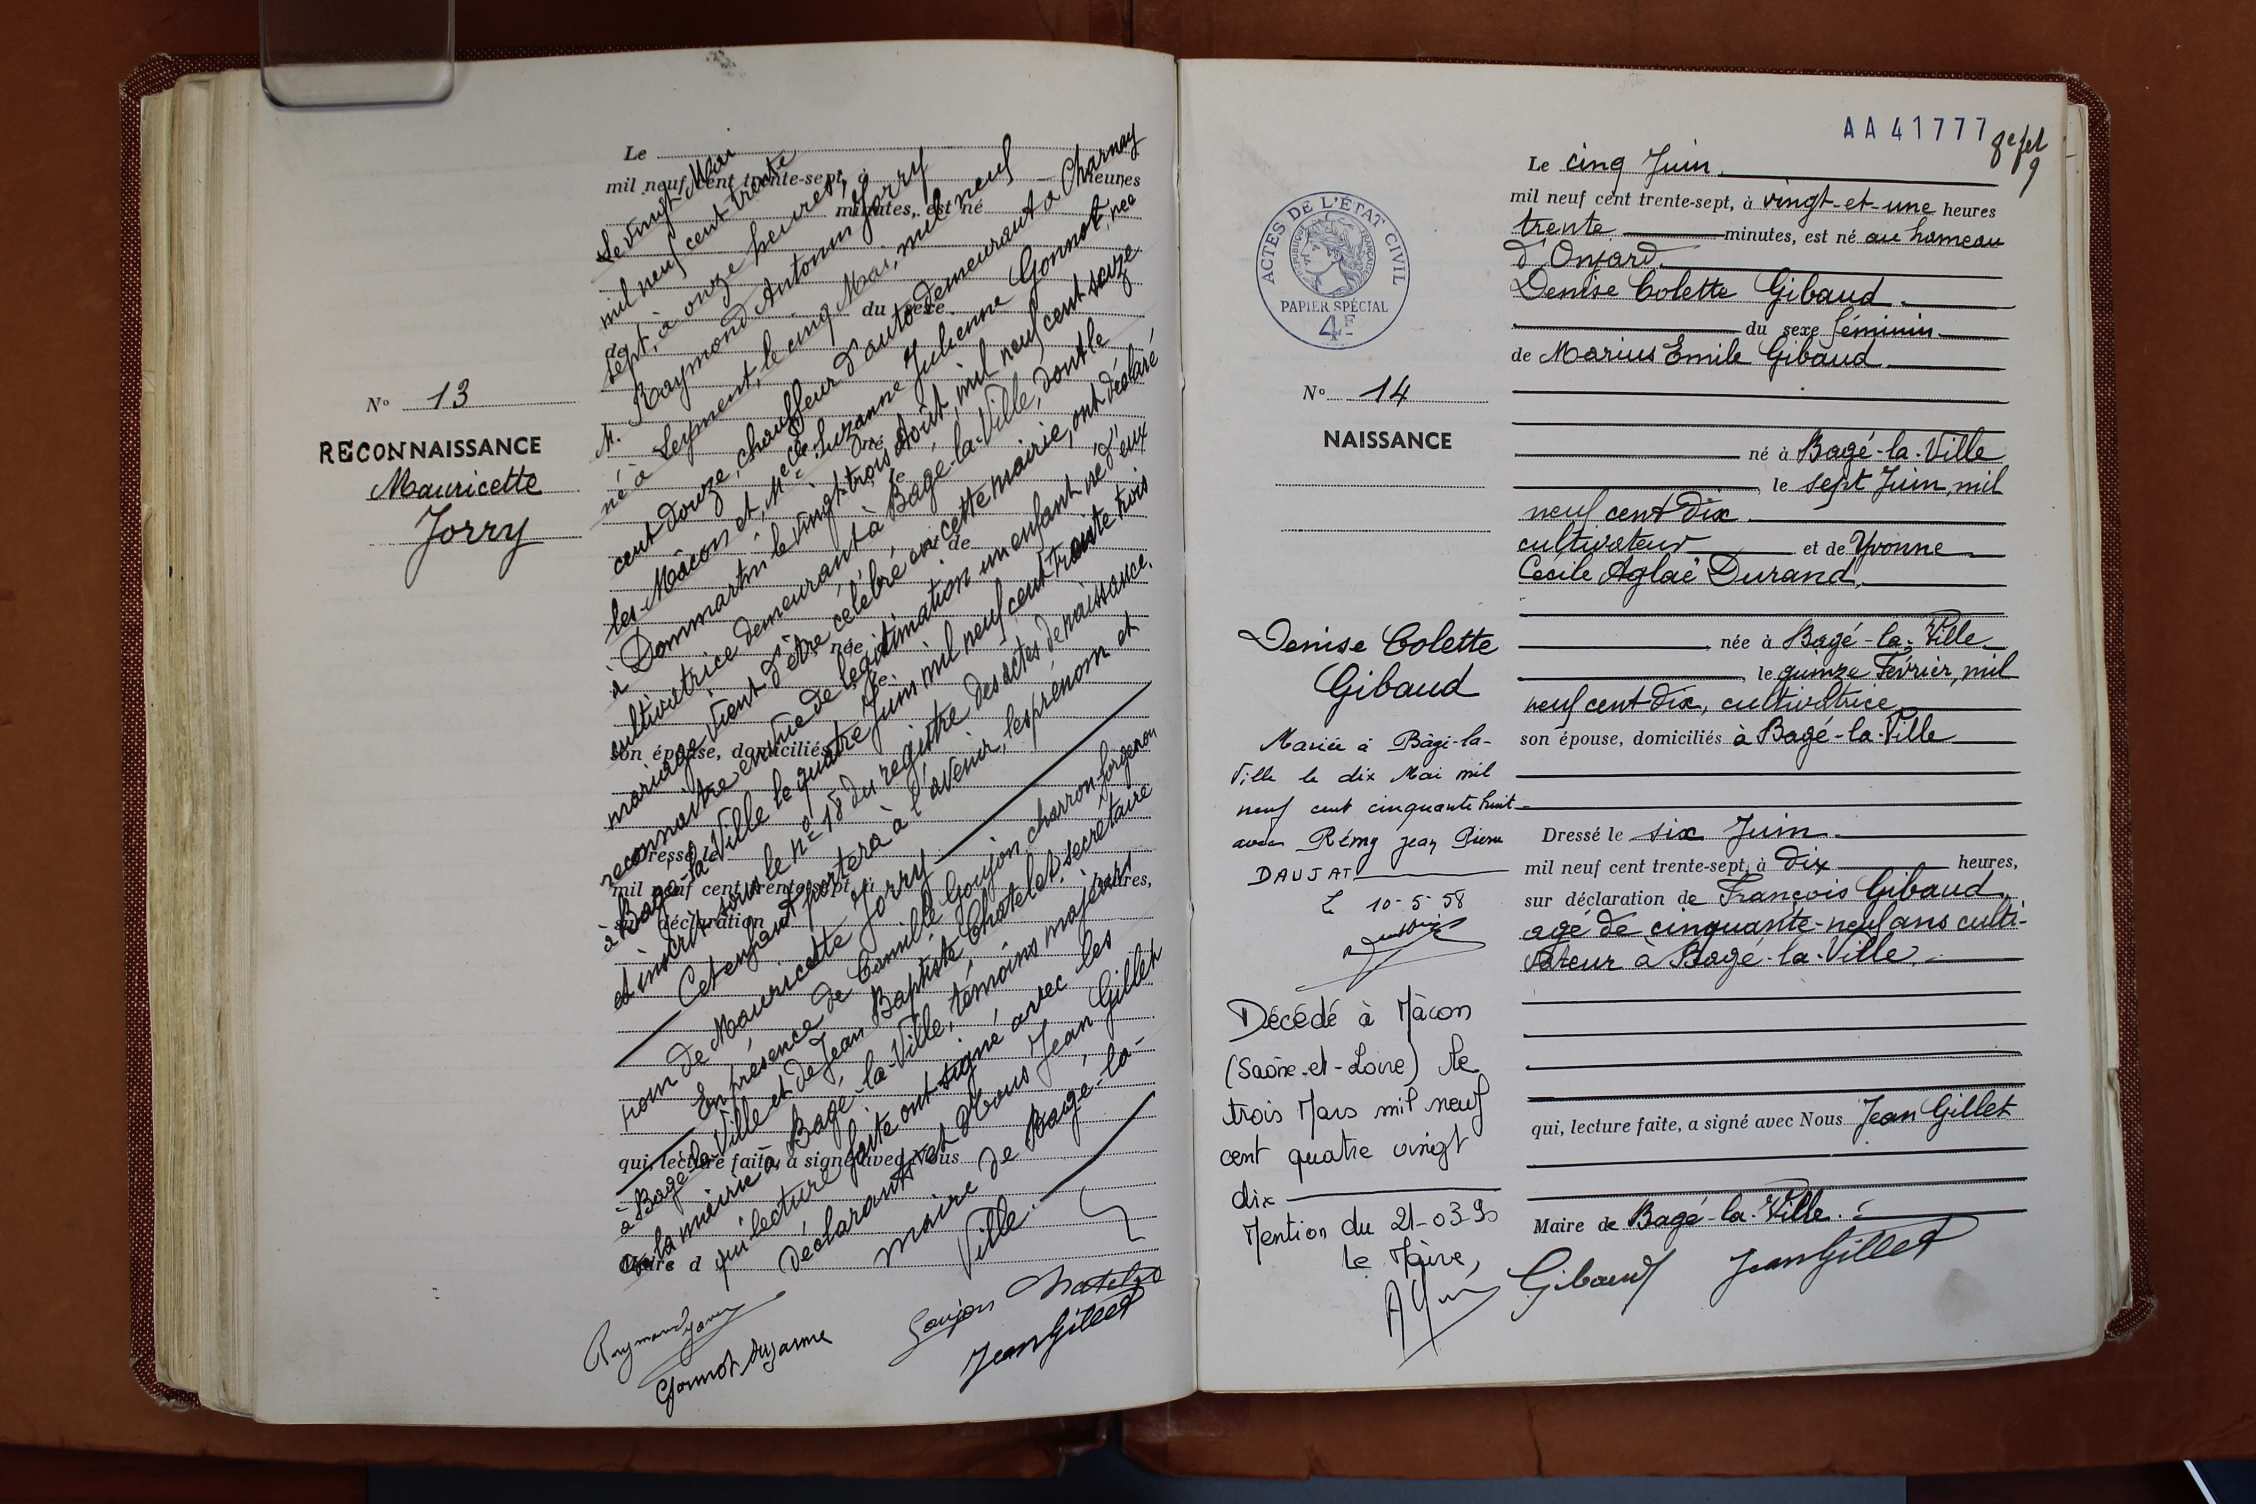 N° 13
RECONNAISSANCE
Mauricette
Jorry
Le
mil neuf cent trente-sept, à heures
minutes, est né
du sexe
de
né à
le
et de
née
le
son épouse, domiciliés
Dressé le
mil neuf cent trente-sept, à heures,
sur déclaration
qui, lecture faite, a signé avec Nous
Maire d
Le vingt Mai
mil neuf cent trente
sept, à onze heures,
M. Raymond Antonin Jorry
né à Leyment, le cinq Mai, mil neuf
cent douze, chauffeur d'auto demeurant à Charnay
les-Mâcon et, Melle Suzanne Julienne Gonnot, née
à Dommartin le vingt-trois Août, mil neuf cent seize
cultivatrice demeurant à Bagé-la-Ville, dont le
mariage vient d'être célébré en cette mairie, ont déclaré
reconnaître en vue de légitimation un enfant né d'eux
à Bagé-la-Ville le quatre Juin mil neuf cent trente trois
et inscrit sous le n° 18 du registre des actes de naissance.
Cet enfant portera à l'avenir, les prénom et
nom de Mauricette Jorry
En présence de Camille Goujon charron-forgeron
à Bagé-la-Ville et de Jean Baptiste Chatelet, secrétaire
de la mairie à Bagé-la-Ville, témoins majeurs
qui lecture faite ont signé avec les
déclarants et Nous Jean Gillet
maire de Bagé-la-
Ville.
Raymond Jorry
Gonnot Suzanne
Goujon Chatelet
Jean Gillet
AA 41777
ACTES DE L'ÉTAT CIVIL
RÉPUBLIQUE FRANÇAISE
PAPIER SPÉCIAL
4F
N° 14
NAISSANCE
Denise Colette
Gibaud
Mariée à Bâgé-la-
Ville le dix Mai mil
neuf cent cinquante huit
avec Rémy Jean Pierre
DAUJAT
Le 10-5-58
Décédé à Mâcon
(Saône-et-Loire) le
trois Mars mil neuf
cent quatre vingt
dix
Mention du 21-03 90
le Maire,
Le cinq Juin
mil neuf cent trente-sept, à vingt-et-une heures
trente minutes, est né au hameau
d'Onjard
Denise Colette Gibaud
du sexe féminin
de Marius Emile Gibaud
né à Bagé-la-Ville
, le sept Juin, mil
neuf cent dix
cultivateur et de Yvonne
Cécile Aglaé Durand,
, née à Bagé-la-Ville
, le quinze Février, mil
neuf cent dix, cultivatrice
son épouse, domiciliés à Bagé-la-Ville
Dressé le six Juin
mil neuf cent trente-sept, à dix heures,
sur déclaration de François Gibaud,
agé de cinquante-neuf ans culti-
vateur à Bagé-la-Ville,
qui, lecture faite, a signé avec Nous Jean Gillet
Maire de Bagé-la-Ville.
Gibaud Jean Gillet